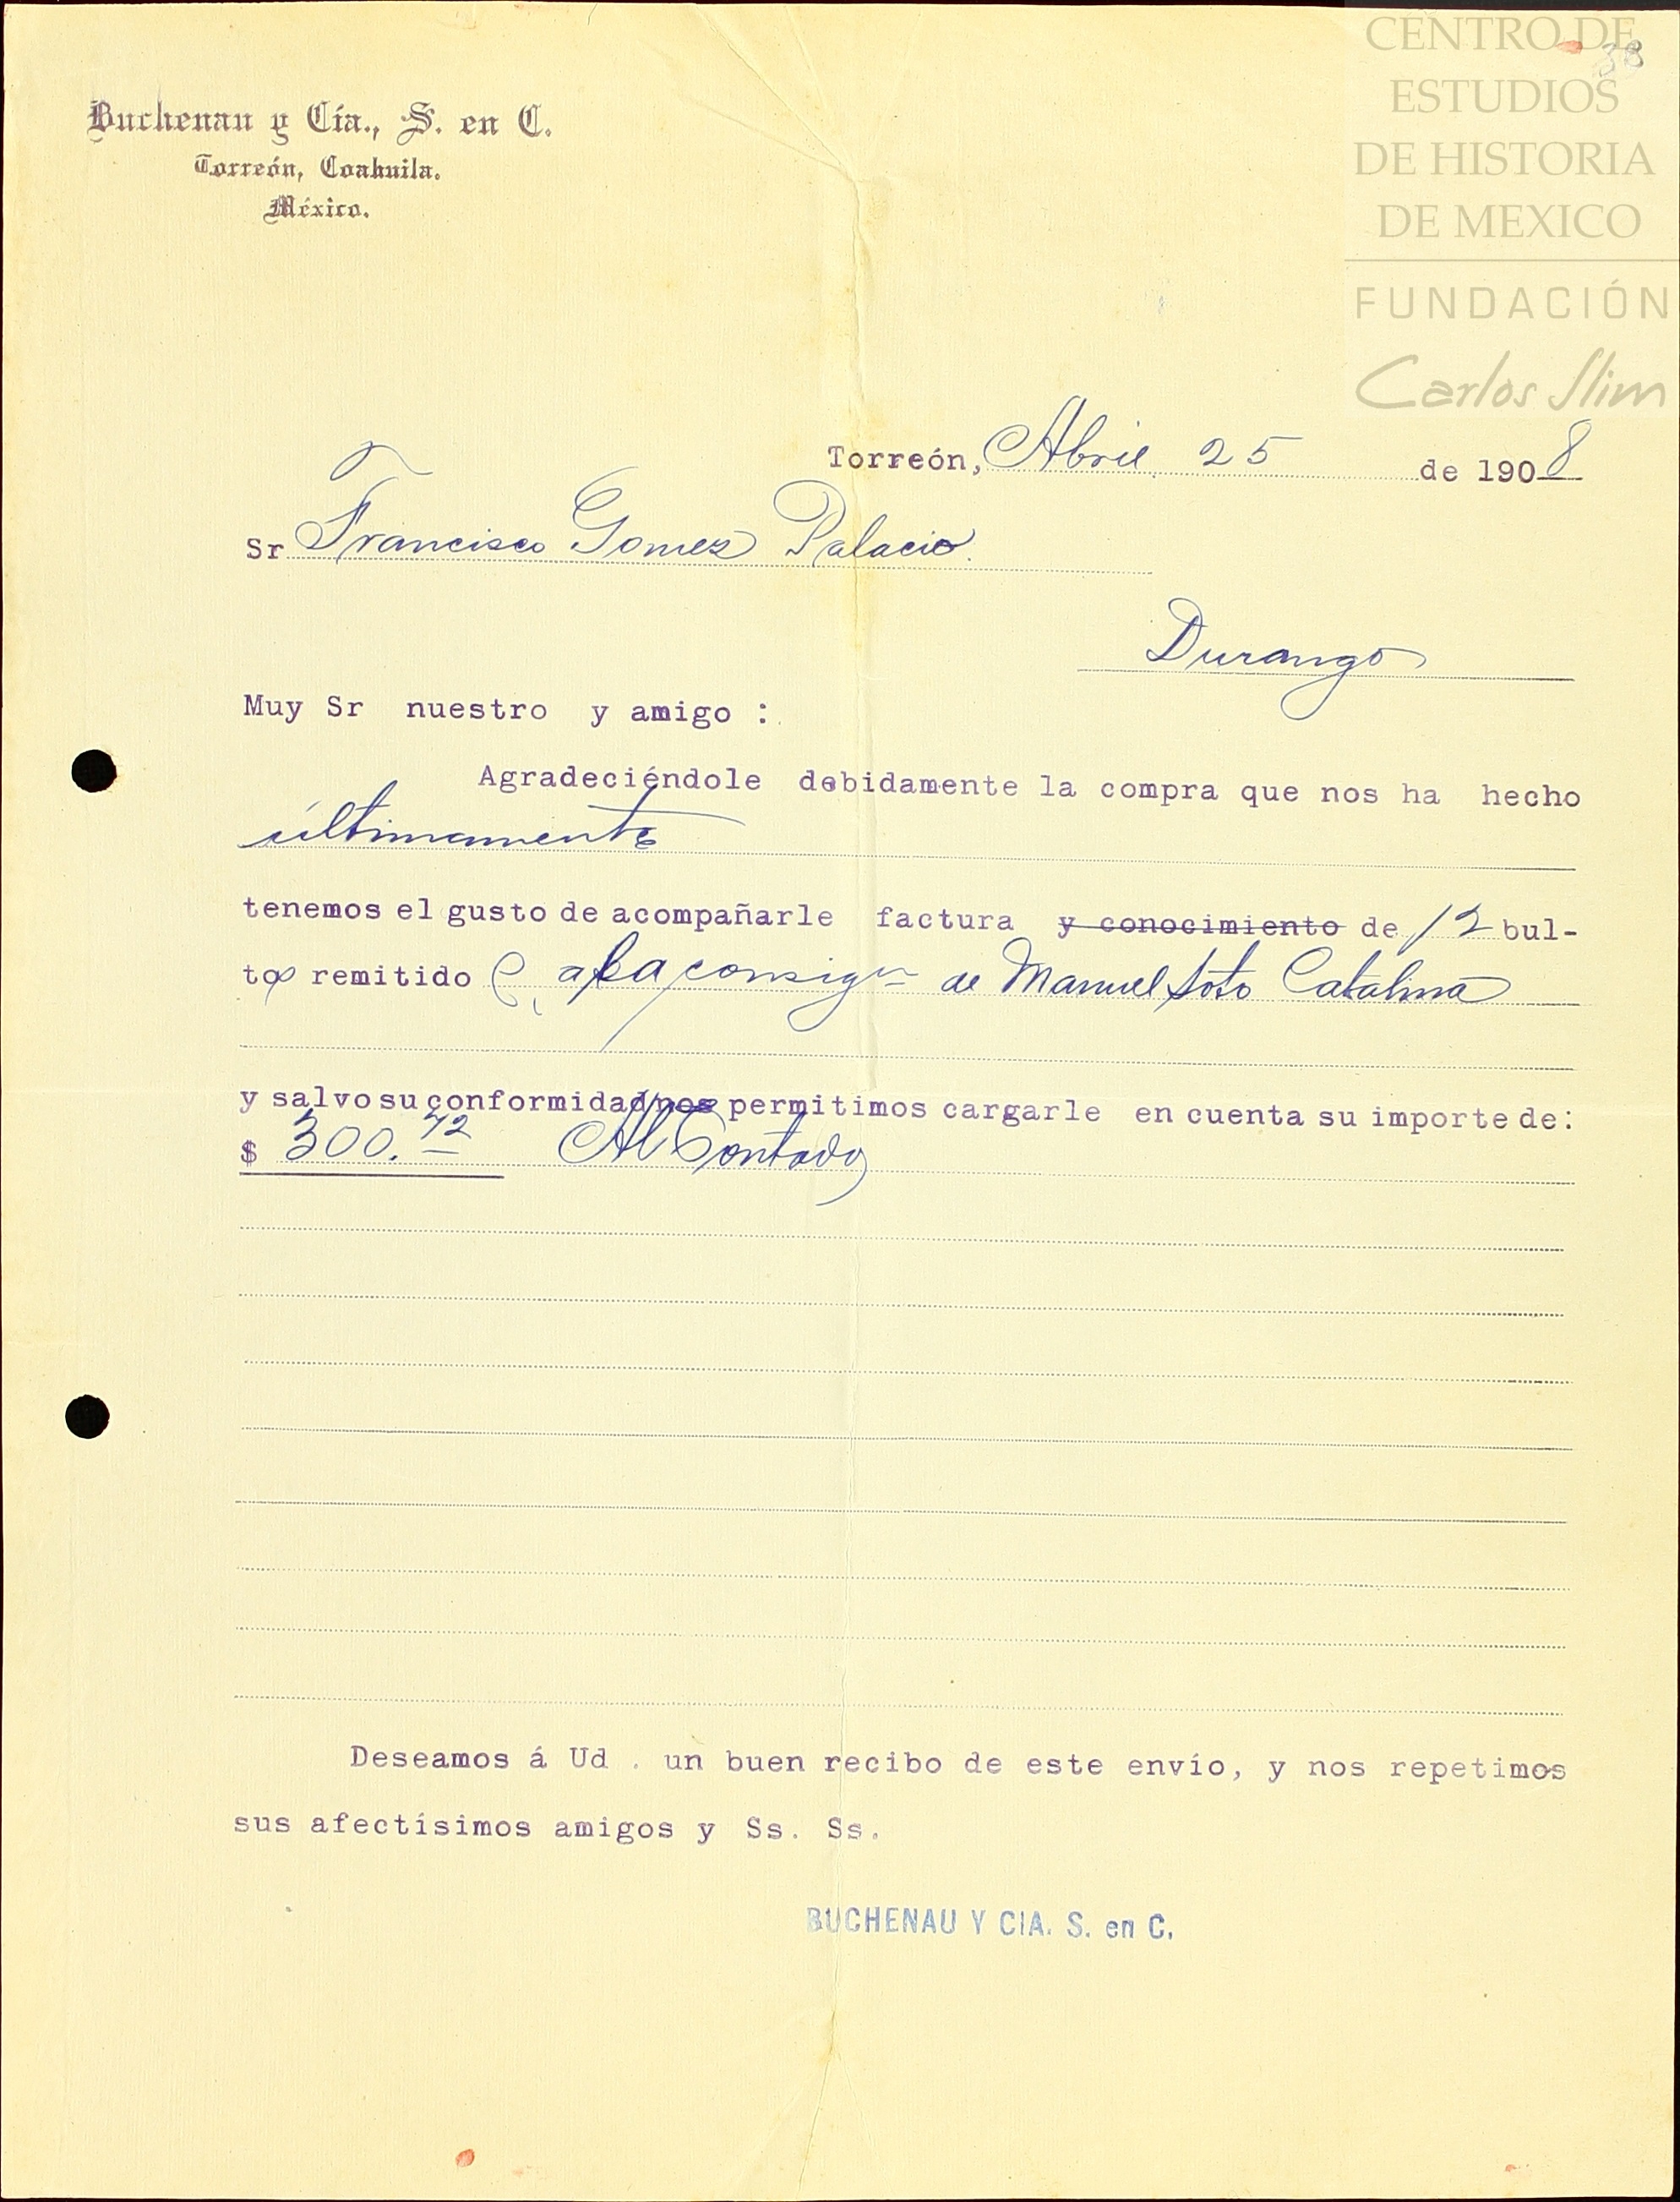 CENTRO DE
ESTUDIOS
DE HISTORIA
DE MEXICO
FUNDACIÓN
Carlos Slim
38
Buchenau y Cía., S. en C.
Torreón, Coahuila.
México.
Torreón, Abril 25 de 1908
Sr Francisco Gomez Palacio.
Durango
Muy Sr nuestro y amigo :
Agradeciéndole debidamente la compra que nos ha hecho
últimamente
tenemos el gusto de acompañarle factura y conocimiento de 12 bul-
tos remitido a la consign de Manuel Soto Catalina
y salvo su conformidad nos permitimos cargarle en cuenta su importe de:
$ 300.42 Al Contado
Deseamos á Ud . un buen recibo de este envío, y nos repetimos
sus afectísimos amigos y Ss. Ss.
BUCHENAU Y CIA. S. en C.